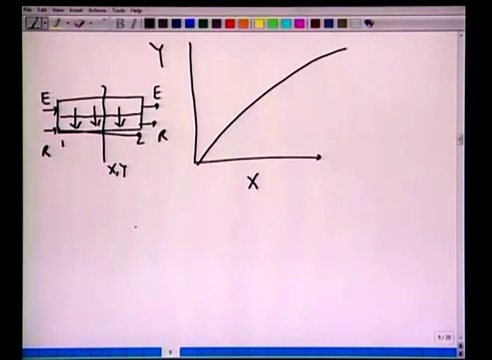 File Edit View Insert Actions Tools Help
Y
E
E
R
1
2
R
X,Y
X
9